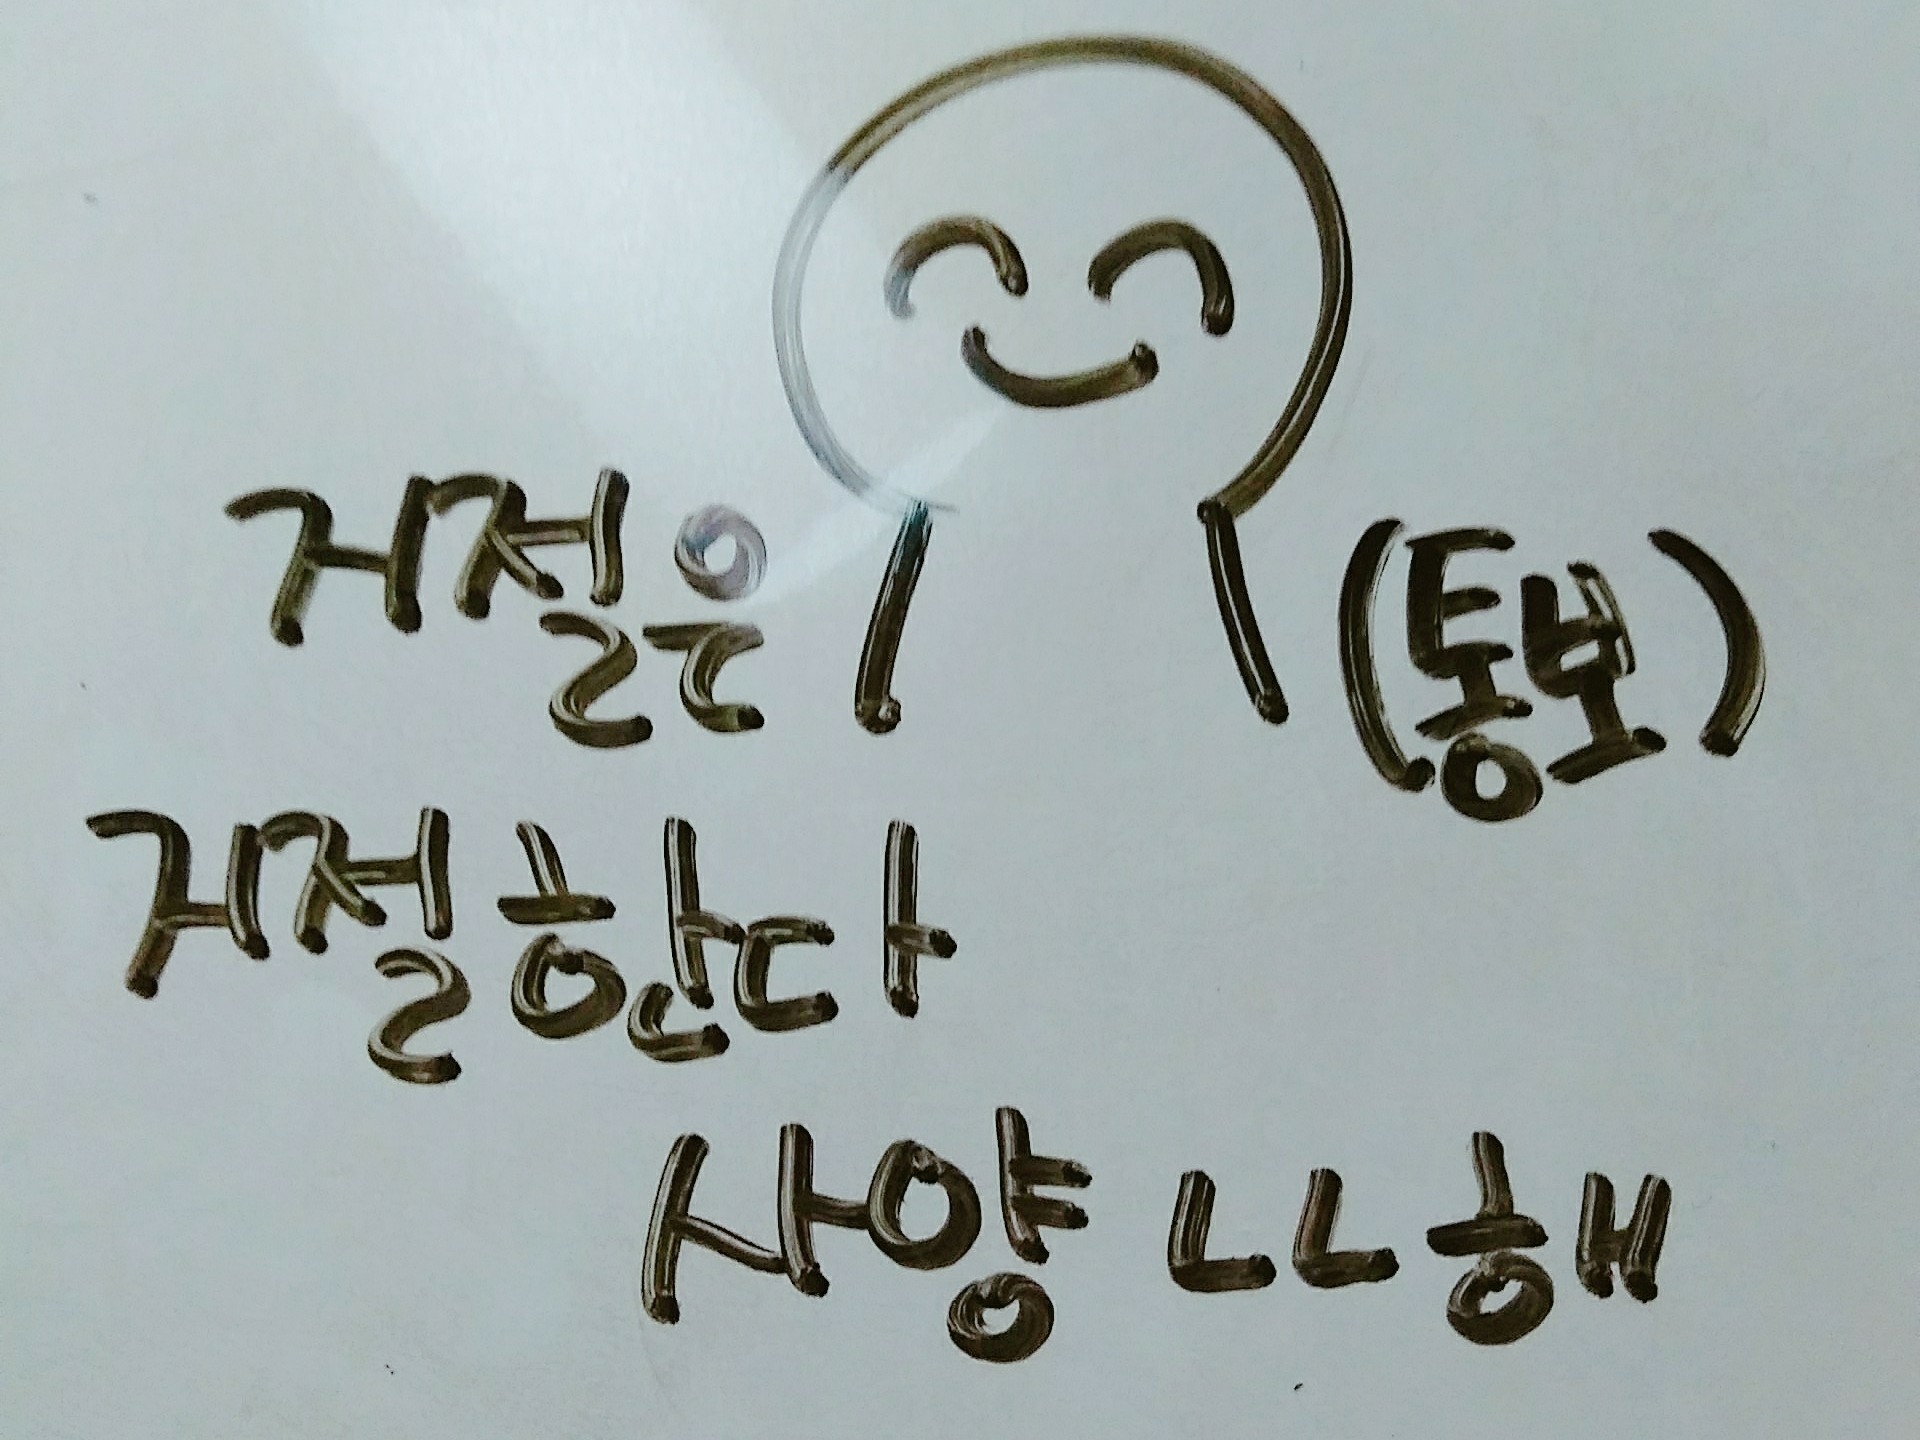 거절은 (통보)
거절한다
사양 ㄴㄴ해